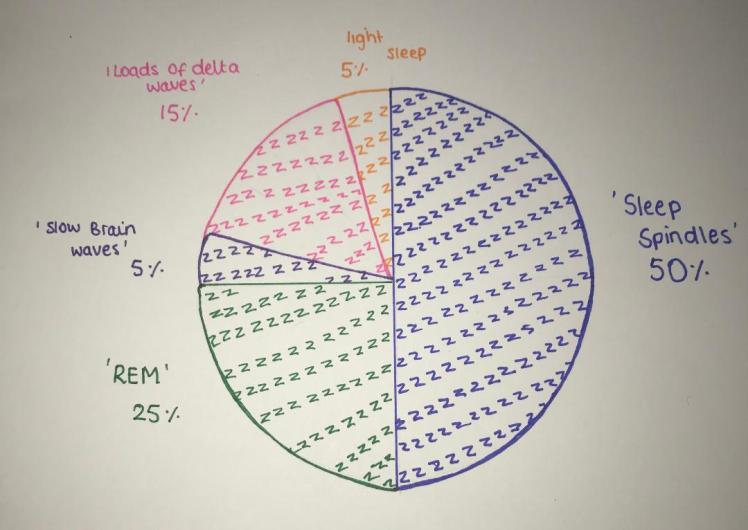 light
sleep
5%
'Loads of delta
waves'
15%
'Sleep
Spindles'
50%
'Slow Brain
waves'
5%
'REM'
25%